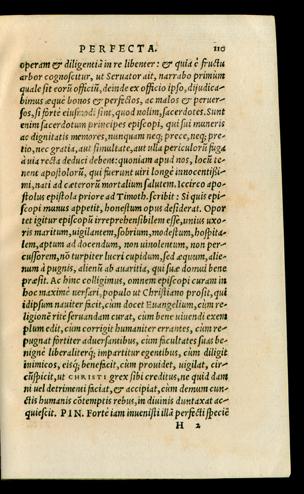 PERFECTA. 110
operam & diligentiã in re libenter: & quia è fructu
arbor cognoscitur, ut Seruator ait, narrabo primùm
quale sit eorũ officiũ, deinde ex officio ipso, dijudica-
bimus æquè bonos & perfectos, ac malos & peruer-
sos, si fortè eiusmodi sint, quod nolim, sacerdotes. Sunt
enim sacerdotum principes episcopi, qui sui muneris
ac dignitatis memores, nunquam neq; prece, neq; pre-
tio, nec gratia, aut simultate, aut ulla periculorũ fuga
à uia recta deduci debent: quoniam apud nos, locũ te-
nent apostolorũ, qui fuerunt uiri longè innocentissi-
mi, nati ad cæterorũ mortalium salutem. Iccirco apo-
stolus epistola priore ad Timoth. scribit: Si quis epi-
scopi munus appetit, honestum opus desiderat. Opor
tet igitur episcopũ irreprehensibilem esse, unius uxo-
ris maritum, uigilantem, sobrium, modestum, hospita-
lem, aptum ad docendum, non uinolentum, non per-
cussorem, nõ turpiter lucri cupidum, sed æquum, alie-
num à pugnis, alienũ ab auaritia, qui suæ domui bene
præsit. Ac hinc colligimus, omnem episcopi curam in
hoc maximè uersari, populo ut Christiano prosit, qui
idipsum nauiter facit, cùm docet Euangelium, cùm re-
ligionẽ ritè seruandam curat, cùm bene uiuendi exem
plum edit, cùm corrigit humaniter errantes, cùm re-
pugnat fortiter aduersantibus, cùm facultates suas be-
nignè liberaliterq; impartitur egentibus, cùm diligit
inimicos, eisq; beneficit, cùm prouidet, uigilat, cir-
cũspicit, ut CHRISTI grex sibi creditus, ne quid dam
ni uel detrimenti faciat, & accipiat, cùm demum cun-
ctis humanis cõtemptis rebus, in diuinis duntaxat ac-
quiescit. PIN. Fortè iam inuenisti illã perfecti speciẽ
H 2